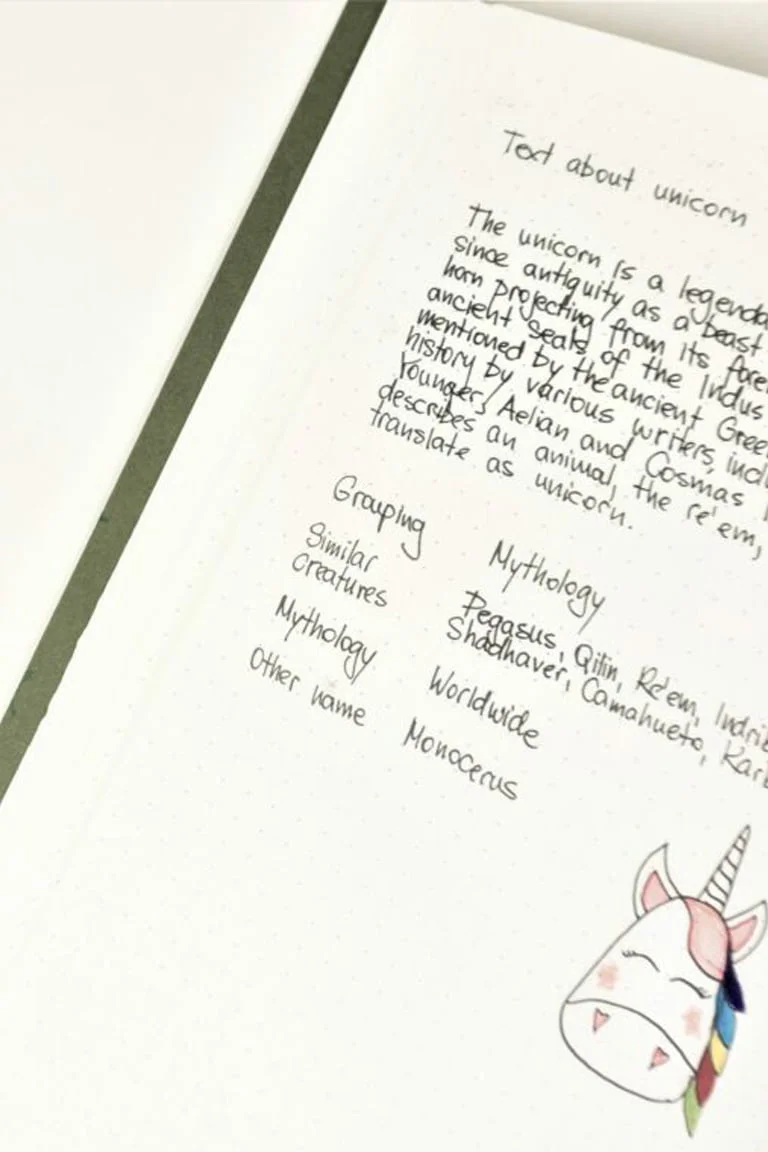 Text about unicorn
The unicorn is a legenda
since antiquity as a beast
horn projecting from its fore
ancient seals of the Indus
mentioned by the ancient Gree
history by various writers, incl
Younger, Aelian and Cosmas
describes an animal, the re'em,
translate as unicorn.
Grouping Mythology
Similar Pegasus, Qilin, Re'em, Indri
creatures Shadhaver, Camahueto, Kar
Mythology Worldwide
Other name Monocerus